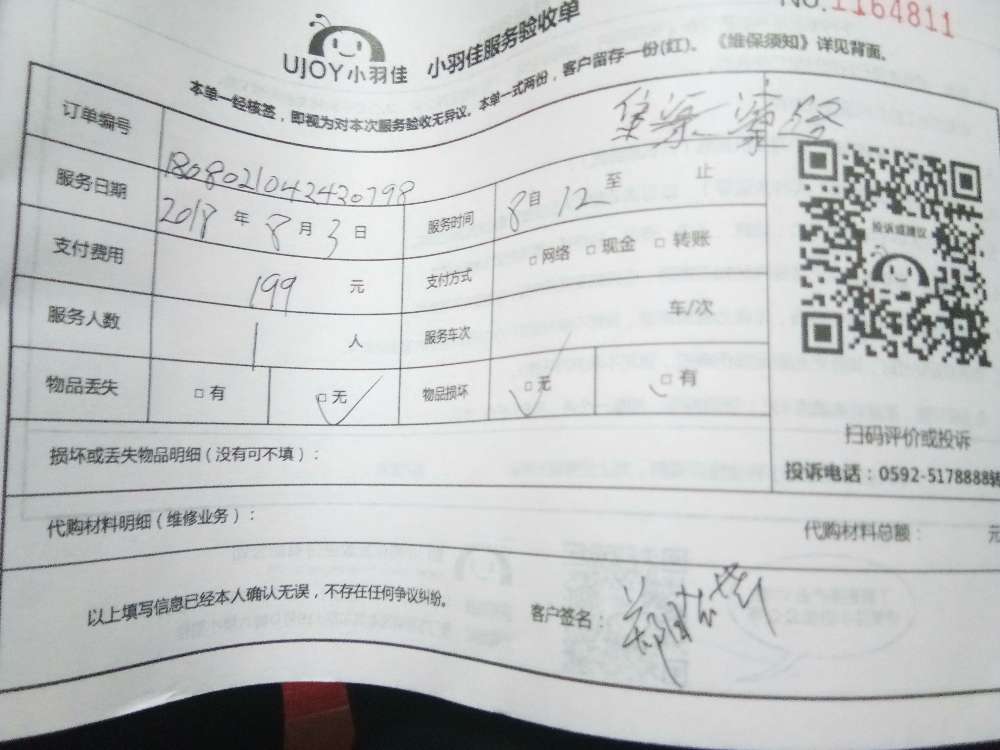 No.1164811
UJOY小羽佳 小羽佳服务验收单
本单一经核签，即视为对本次服务验收无异议。本单一式两份，客户留存一份(红)。《维保须知》详见背面。
订单编号 180802104242420798
服务日期 2018 年 8 月 3 日 服务时间 8 自 12 至 止
支付费用 199 元 支付方式 □网络 □现金 □转账
服务人数 1 人 服务车次 车/次
物品丢失 □有 □无 ✓ 物品损坏 □无 ✓ □有
投诉或建议
扫码评价或投诉
投诉电话：0592-5178888转
损坏或丢失物品明细（没有可不填）：
代购材料明细（维修业务）： 代购材料总额： 元
以上填写信息已经本人确认无误，不存在任何争议纠纷。 客户签名：